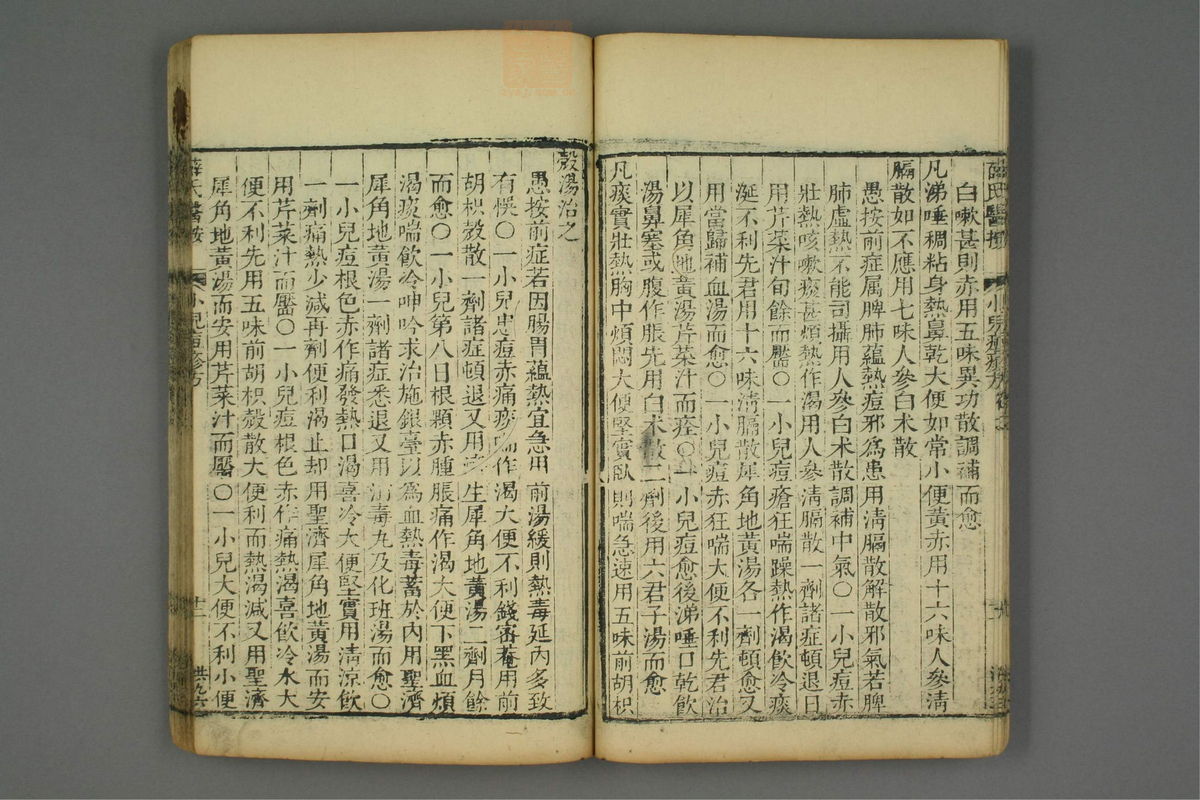 白嗽甚則赤用五味異功散調補而愈
凡涕唾稠粘身熱鼻乾大便如常小便黃赤用十六味人參淸
膈散如不應用七味人參白朮散
愚按前症属脾肺蘊熱痘邪爲患用淸膈散解散邪氣若脾
肺虛熱不能司攝用人參白朮散調補中氣〇一小兒痘赤
壯熱咳嗽痰甚煩熱作渴用人參淸膈散一劑諸症頓退日
用芹菜汁旬餘而靨〇一小兒痘瘡狂喘躁熱作渴飮冷痰
涎不利先君用十六味淸膈散犀角地黃湯各一劑頓愈又
用當歸補血湯而愈〇一小兒痘赤狂喘大便不利先君治
以犀角地黃湯芹菜汁而痊〇一小兒痘愈後涕唾口乾飮
湯鼻塞或腹作脹先用白朮散二劑後用六君子湯而愈
凡痰實壯熱胸中煩悶大便堅實臥則喘急速用五味前胡枳
殼湯治之
愚按前症若因腸胃蘊熱宜急用前湯緩則熱毒延內多致
有悞〇一小兒患痘赤痛痰喘作渴大便不利錢密菴用前
胡枳殼散一劑諸症頓退又用生犀角地黃湯二劑月餘
而愈〇一小兒第八日根顆赤腫脹痛作渴大便下黑血煩
渴痰喘飮冷呻吟求治施銀臺以爲血熱毒蓄於內用聖濟
犀角地黃湯一劑諸症悉退又用消毒丸及化斑湯而愈〇
一小兒痘根色赤作痛發熱口渴喜冷大便堅實用淸涼飮
一劑痛熱少減再劑便利渴止却用聖濟犀角地黃湯而安
用芹菜汁而靨〇一小兒痘根色赤作痛熱渴喜飮冷水大
便不利先用五味前胡枳殼散大便利而熱渴減又用聖濟
犀角地黃湯而安用芹菜汁而靨〇一小兒大便不利小便
薛氏醫按
小兒痘疹方
十二